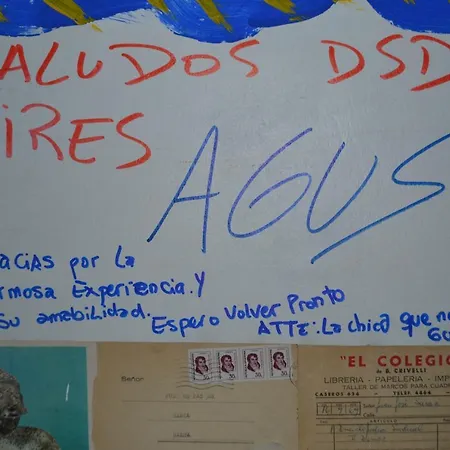 ALUDOS DSD
IRES
AGUS
ACIAS por LA
rmosa Experiencia. y
su amabilidad.
Espero Volver Pronto
ATTE: La chica que no
Gu
Señor
"EL COLEGIO
de R. CRIVELLI
LIBRERIA - PAPELERIA - IMP
TALLER DE MARCOS PARA CUAD
CASEROS 636 TELEF 4466
ARTICULO